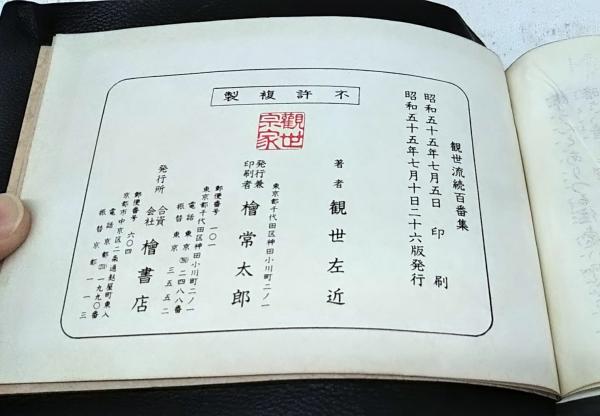 観世流続百番集
昭和五十五年七月五日 印刷
昭和五十五年七月十日二十六版発行
不許複製
觀世宗家
著者 観世左近
東京都千代田区神田小川町二ノ一
発行兼印刷者 檜常太郎
東京都千代田区神田小川町二ノ一
郵便番号 一〇一
電話 東京 二四八八番
振替 東京 三五五二
発行所 合資会社 檜書店
京都市中京区二条通麩屋町東入
郵便番号 六〇四
電話 京都 一九九〇番
振替 京都 一一三